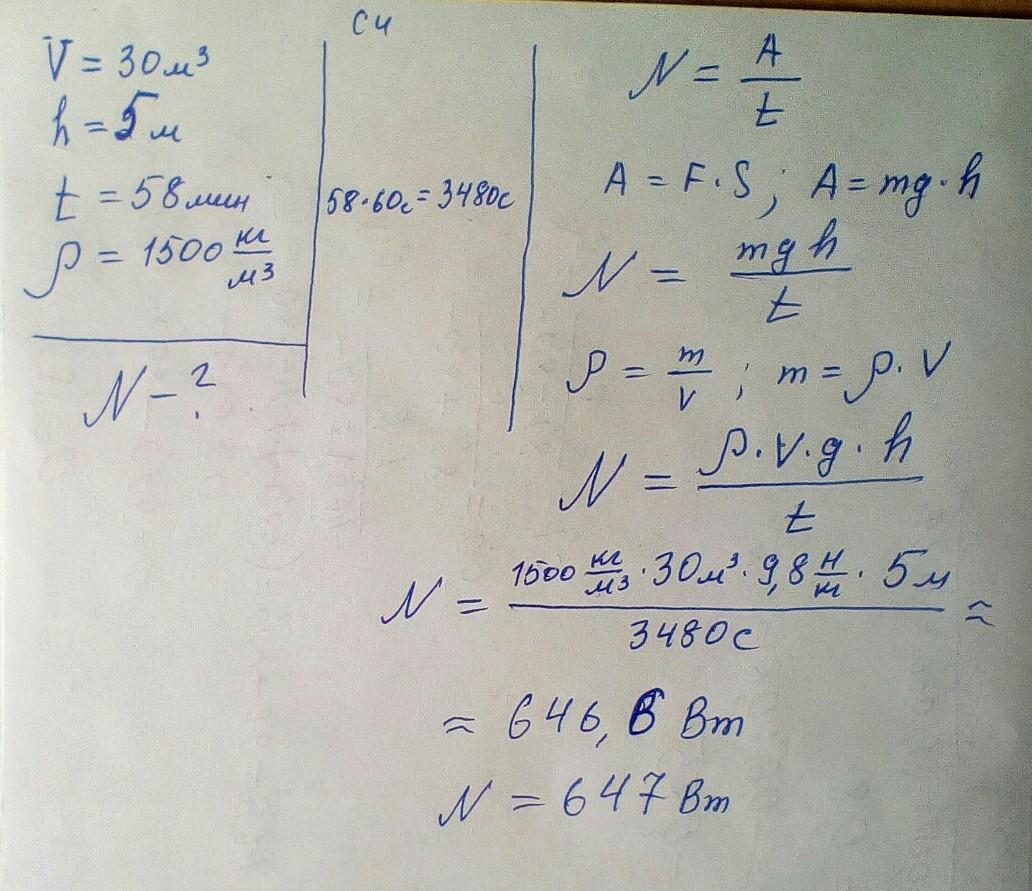 V = 30 м³
h = 5 м
t = 58 мин
ρ = 1500 кг/м³
N - ?
СИ
58·60с = 3480с
N = A/t
A = F·S; A = mg·h
N = mgh/t
ρ = m/V; m = ρ·V
N = ρ·V·g·h/t
N = 1500 кг/м³ · 30м³ · 9,8 Н/м · 5м / 3480с ≈
≈ 646,6 Вт
N = 647 Вт